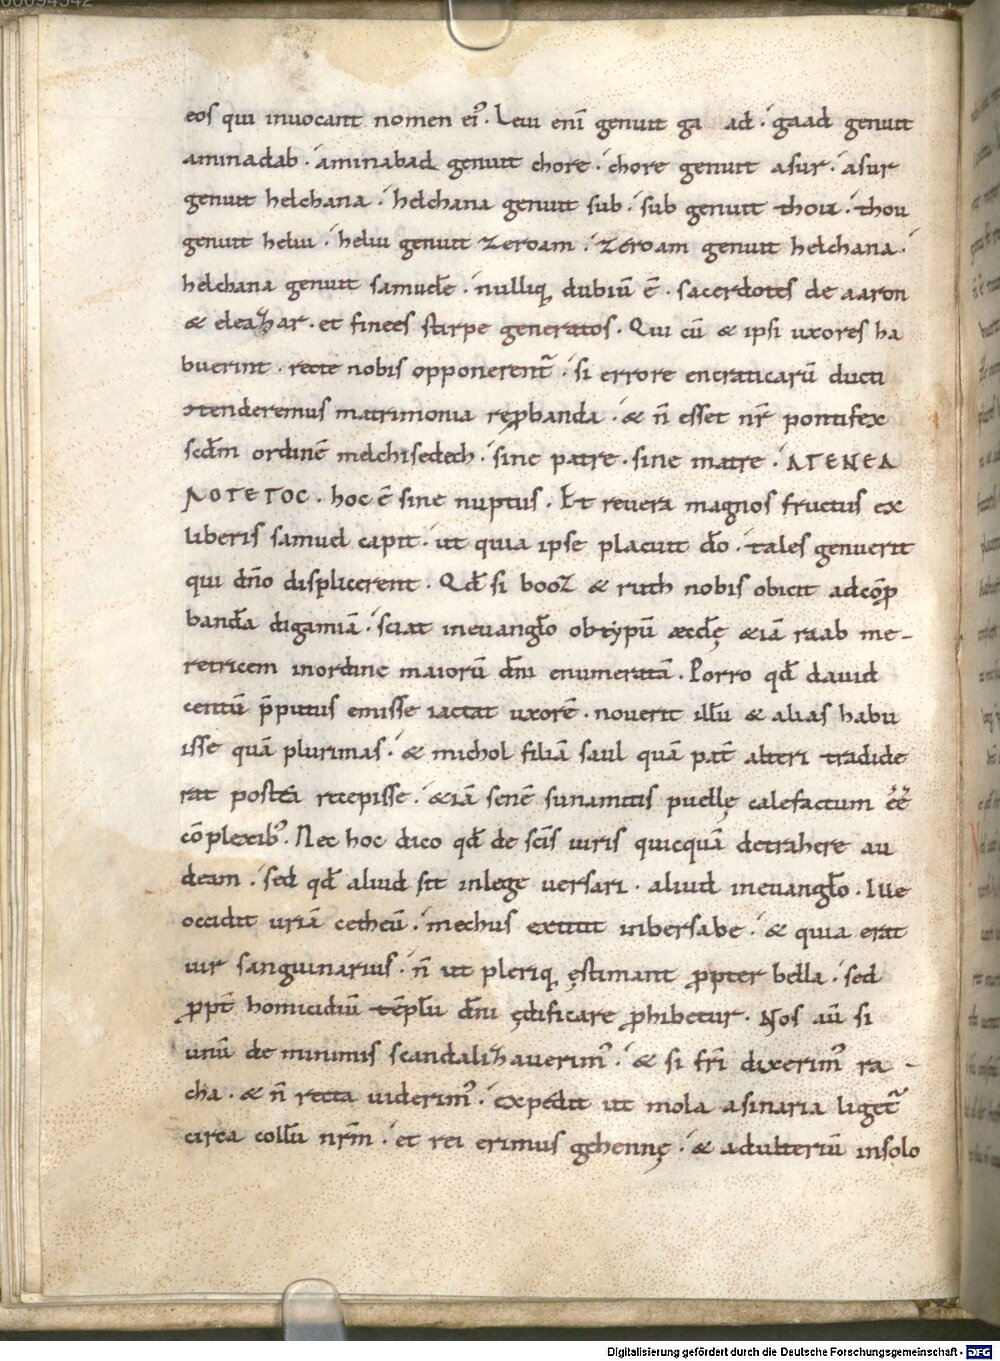 00094342
eos qui inuocant nomen ei᾽. Leui enī genuit ga ad. gaad genuit
aminadab. aminabad genuit chore. chore genuit asur. asur
genuit helchana. helchana genuit sub. sub genuit thou. thou
genuit heliu. heliu genuit zeroam. zeroam genuit helchana.
helchana genuit samuel̄e. nulliq; dubiū ē. sacerdotes de aaron
& eleazar. et finees stirpe generatos. Qui cū & ipsi uxores ha
buerint. recte nobis opponerent᾽. si errore encraticarū ducti
contenderemus matrimonia reꝓbanda. & n̄ esset nr̄ pontifex
scd̄m ordinē melchisedech. sine patre. sine matre. ΑΓΕΝΕΑ
ΛΟΓΕΤΟC. hoc ē sine nuptus. Et reuera magnos fructus ex
liberis samuel capit. ut quia ipse placuit dō. tales genuerit
qui dn̄o displicerent. Qd̄ si booz & ruth nobis obicit adcōp
banda digamiā. sciat ineuangl̄o ob typū æccl̄ę &iā raab me-
retricem inordine maiorū dn̄i enumeratā. Porro qd̄ dauid
centū p̄putiis emisse iactat uxorē. nouerit illū & alias habu
isse quā plurimas. & michol filiā saul quā pat̄ alteri tradide
rat postea recepisse. &iā senē sunamitis puellę calefactum ēē
cōplexib᾽. Nec hoc dico qd̄ de scīs uiris quicquā detrahere au
deam. sed qd̄ aliud sit inlege uersari. aliud ineuangl̄o. Ille
occidit uriā cetheū. mechus extitit inbersabe. & quia erat
uir sanguinarius. n̄ ut pleriq; ęstimant ꝓpter bella. sed
ꝓpt̄ homicidiū tēplū dn̄i ędificare ꝓhibetur. Nos aū si
unū de minimis scandalizauerim᾽. & si fr̄i dixerim᾽ ra-
cha. & n̄ recta uiderim᾽. expedit ut mola asinaria liget᾽
circa collū nr̄m. et rei erimus gehennę. & adulteriū insolo
Digitalisierung gefördert durch die Deutsche Forschungsgemeinschaft - DFG